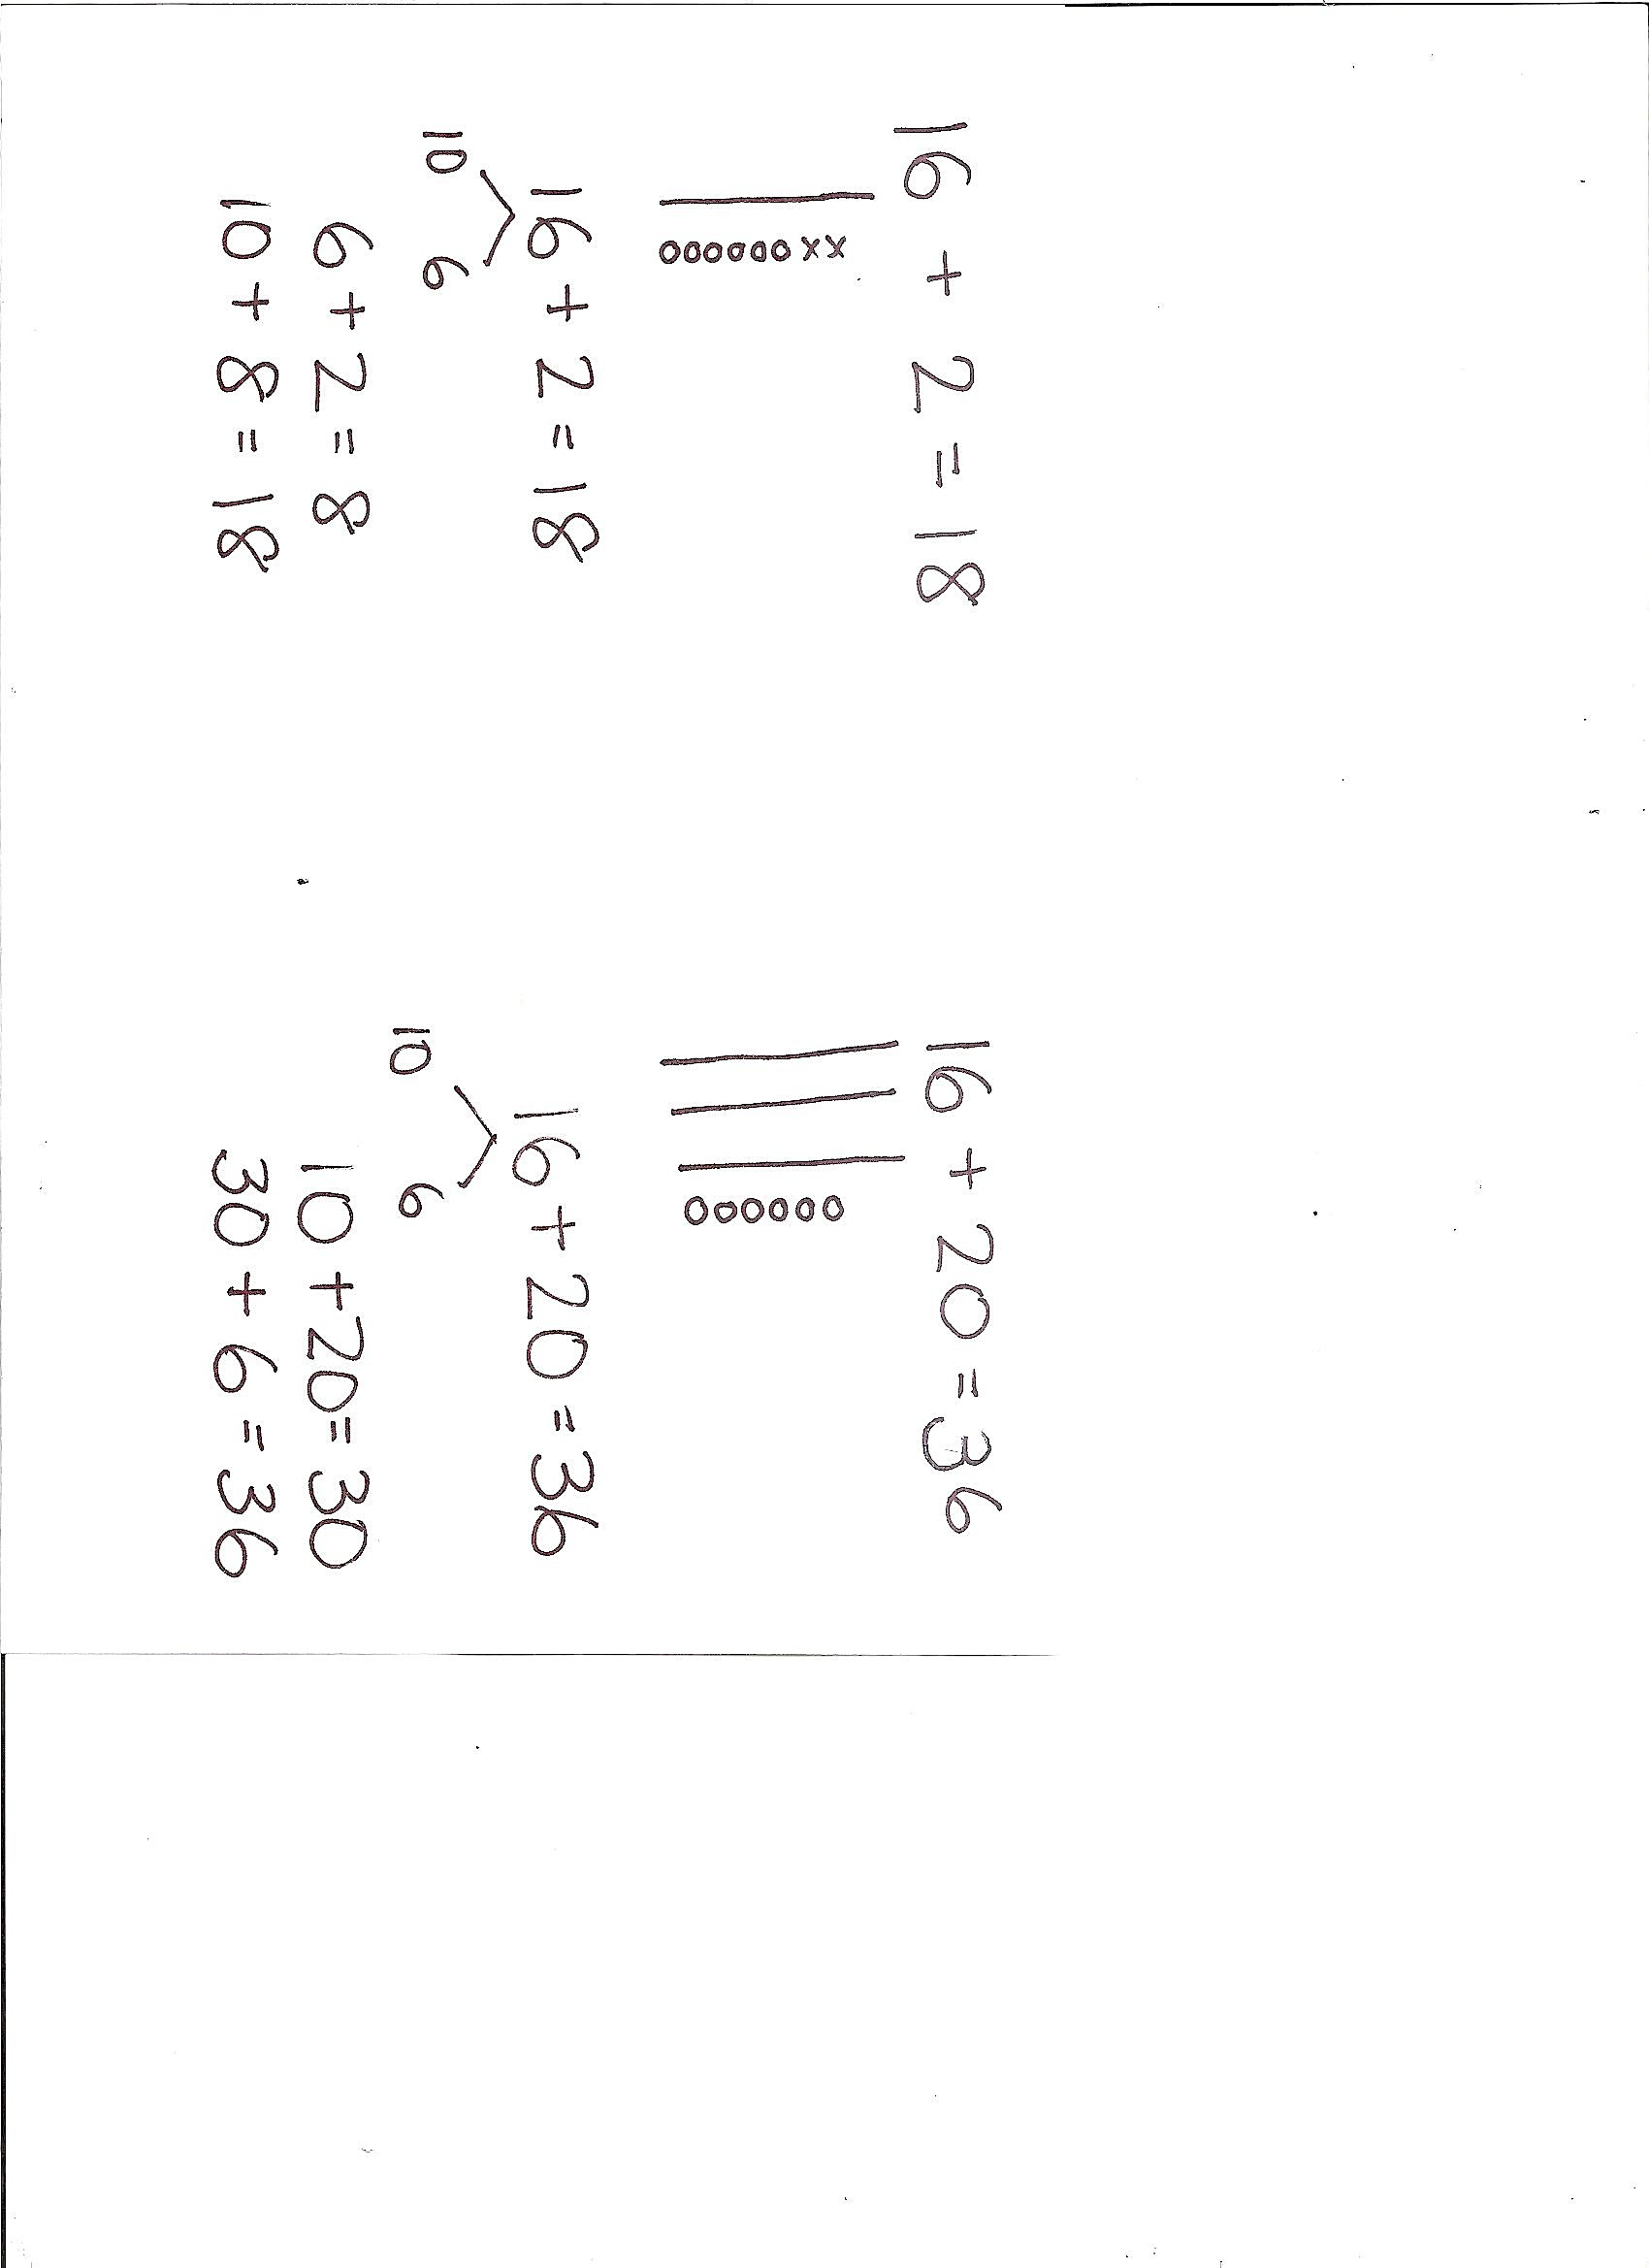 16 + 2 = 18
oooooo x x
16 + 2 = 18
10 6
6 + 2 = 8
10 + 8 = 18
16 + 20 = 36
oooooo
16 + 20 = 36
10 6
10 + 20 = 30
30 + 6 = 36